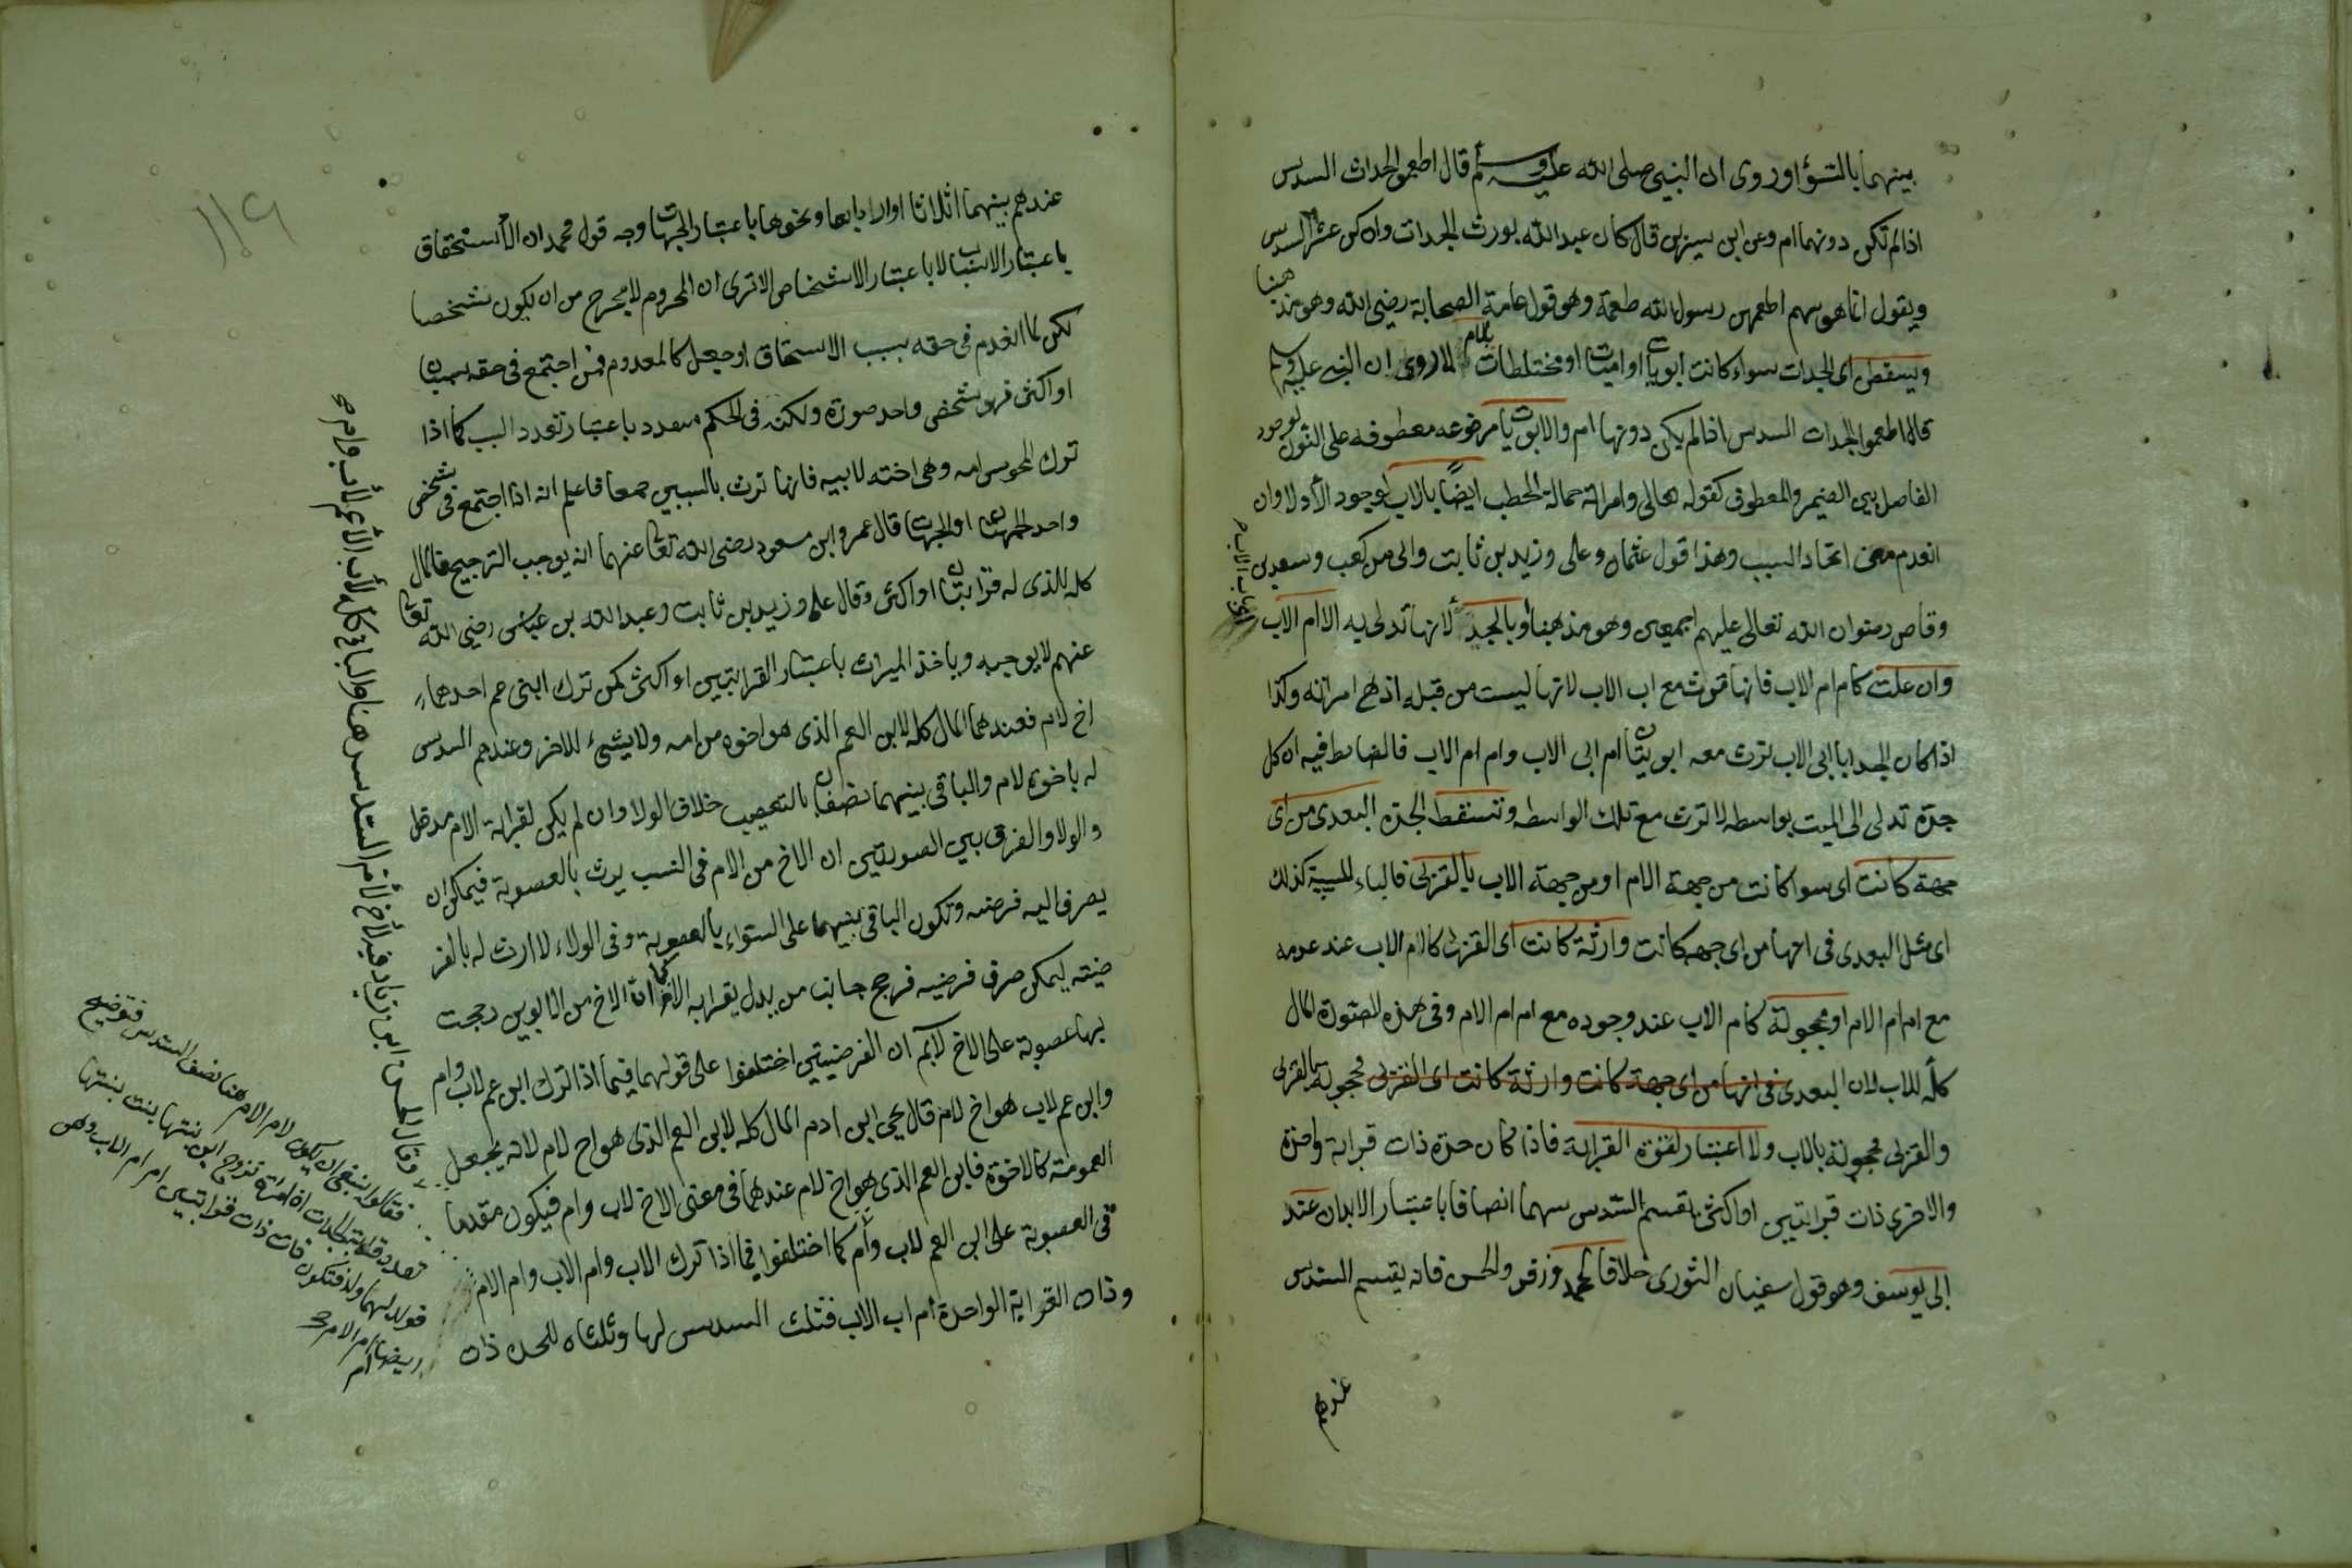 بينهما بالسوا وروى ان النبي صلى الله عليه وسلم قال اطعموا الجدات السدس
اذا لم تكن دونهما ام وعن ابن سيرين قال كان عبد الله يورث الجدات وان كن عشرا السدس
ويقول انما هو سهم اطعمهن رسول الله طعمة وهو قول عامة الصحابة رضى الله وهو مذهبنا
ويسقطن اى الجدات سواء كانت ابويات او اميات او مختلطات بالام لما روى ان النبي عليه وسلم
قال اطعموا الجدات السدس اذا لم يكن دونها ام والابويات مرفوعه معطوفه على النون لوجود
الفاصل بين الضمير والمعطوف كقوله تعالى وامراته حمالة الحطب ايضا بالاب لوجود الأدلا وان
انعدم معنى اتحاد السبب وهذا قول عثمان وعلى وزيد بن ثابت وابى بن كعب وسعد بن
وقاص رضوان الله تعالى عليهم اجمعين وهو مذهبنا وبالجد لانها تدلى به الا ام الاب
وان علت كام ام الاب فانها ترث مع اب الاب لانها ليست من قبله اذ هى امراته وكذا
اذا كان الجد ابا ابى الاب ترث معه ابويتان ام ابى الاب وام ام الاب فالضابط فيه ان كل
جدة تدلى الى الميت بواسطه لا ترث مع تلك الواسطه وتسقط الجدة البعدى من اى
جهة كانت اى سوا كانت من جهة الام او من جهة الاب بالقربى فالباء للسببية كذلك
اى مثل البعدى فى انها من اى جهه كانت وارثة كانت اى القربى كام الاب عند عدمه
مع ام ام الام او محجوبة كام الاب عند وجوده مع ام ام الام وفى هذه الصورة المال
كله للاب لان البعدى فى انها من اى جهة كانت وارثة كانت اى القربى محجوبة بالقربى
والقربى محجوبة بالاب ولا اعتبار لقوة القرابة فاذا كان جدة ذات قرابة واحدة
والاخرى ذات قرابتين او اكثر يقسم السدس بينهما انصافا باعتبار الابدان عند
ابى يوسف وهو قول سفيان الثورى خلافا لمحمد وزفر والحسن فانه يقسم السدس
عندهم
عندهم بينهما اثلاثا او ارباعا ونحوها باعتبار الجهات وجه قول محمد ان الأستحقاق
باعتبار الاسباب لا باعتبار الاشخاص الا ترى ان المحروم لا يخرج من ان يكون شخصا
لكن لما انعدم فى حقه سبب الاستحقاق او جعل كالمعدوم فمن اجتمع فى حقه سببان
او اكثر فهو شخص واحد صورة ولكنه فى الحكم متعدد باعتبار تعدد السبب كما اذا
ترك المجوسى امه وهى اخته لابيه فانها ترث بالسببين جمعا فاعلم انه اذا اجتمع فى شخص
واحد الجهتان او الجهات قال عمر وابن مسعود رضى الله تعالى عنهما انه يوجب الترجيح فالمال
كله للذى له قرابتان او اكثر وقال على وزيد بن ثابت وعبد الله بن عباس رضى الله تعالى
عنهم لا يوجبه وياخذ الميراث باعتبار القرابتين او اكثر كمن ترك ابنى عم احدهما
اخ لام فعندهما المال كله لابن العم الذى هو اخوه من امه ولا شىء للاخر وعندهم السدس
له باخوة لام والباقى بينهما نصفان بالتعصيب خلاف الولا وان لم يكن لقرابة الام مدخل
والولا والفرق بين الصورتين ان الاخ من الام فى النسب يرث بالعصوبة فيمكن ان
يصرف اليه فرضه وتكون الباقى بينهما على السواء بالعصوبة وفى الولاء لا ارث له بالفر
ضيته ليمكن صرف فرضيه فرجح جانب من يدل بقرابة الام كما ان الاخ من الابوين رجحت
بها عصوبة على الاخ لاب ثم ان الفرضيين اختلفوا على قولهما فيما اذا ترك ابن عم لاب وام
وابن عم لاب هو اخ لام قال يحيى ابن ادم المال كله لابن العم الذى هو اخ لام لانه يجعل
العمومة كالاخوة فابن العم الذى هو اخ لام عندهما فى معنى الاخ لاب وام فيكون مقدما
فى العصوبة على ابن العم لاب وأم كما اختلفوا فيما اذا ترك الاب وام الاب وام الام
وذات القرابة الواحدة أم اب الاب فثلث السدس لها وثلثاه للجدة ذات
وقال الحسن ابن زياد فيه لأخ لأم السدس هنا والباقى كله لأب الأعم لأب وام
فقالوا ينبغى ان يكون لام الام هنا نصف السدس فتوضيح
تعدد قرابة الجدات ان امراة تزوج ابن بنتها بنت بنتها
فولد لهما ولد فتكون ذات قرابتين ام ام الاب وهى
ايضا ام ام الام